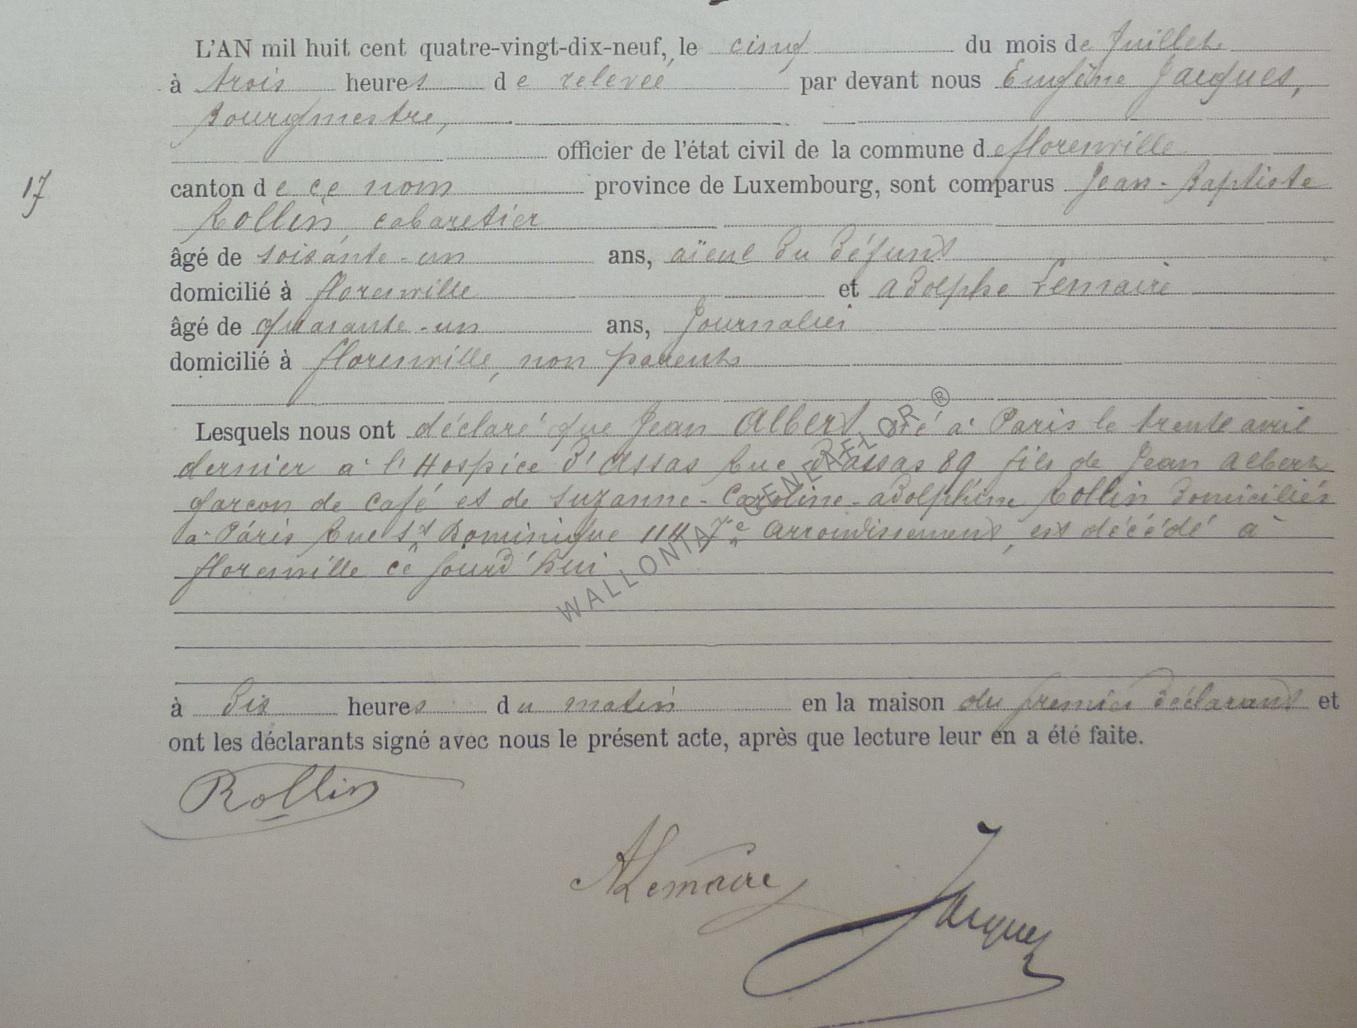 L'AN mil huit cent quatre-vingt-dix-neuf, le cinq du mois de Juillet
à trois heures de relevée par devant nous Eugène Jacques,
Bourgmestre,
officier de l'état civil de la commune de florenville
17 canton de ce nom province de Luxembourg, sont comparus Jean-Baptiste
Rollin, cabaretier
âgé de soixante-un ans, aïeul du défunt
domicilié à florenville et Adolphe Lemaire
âgé de quarante-un ans, journalier
domicilié à florenville, non parents
Lesquels nous ont déclaré que Jean Albert né à Paris le trente avril
dernier à l'Hospice d'Assas Rue d'assas 89 fils de Jean Albert
garçon de café et de Suzanne-Caroline-adolphine Rollin domiciliés
à Paris Rue St Dominique 114 7me arrondissement, est décédé à
florenville ce jourd'hui
WALLONIA GENEAFLOR ®
à dix heures du matin en la maison du premier déclarant et
ont les déclarants signé avec nous le présent acte, après que lecture leur en a été faite.
Rollin
ALemaire
Jacques